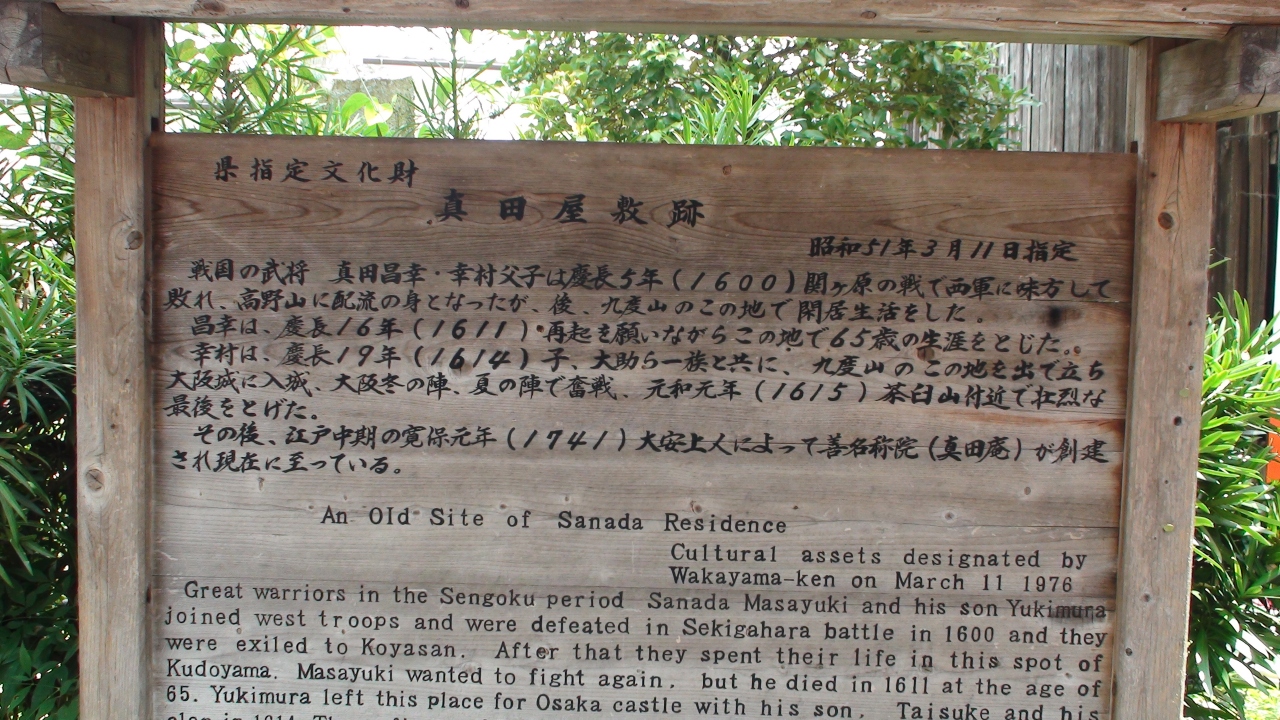 県指定文化財
真田屋敷跡
昭和51年3月11日指定
戦国の武将 真田昌幸・幸村父子は慶長5年(1600)関ヶ原の戦で西軍に味方して
敗れ、高野山に配流の身となったが、後、九度山のこの地で閑居生活をした。
昌幸は、慶長16年(1611)再起を願いながらこの地で65歳の生涯をとじた。
幸村は、慶長19年(1614)子、大助ら一族と共に、九度山のこの地を出て立ち
大阪城に入城、大阪冬の陣、夏の陣で奮戦、元和元年(1615)茶臼山付近で壮烈な
最後をとげた。
その後、江戸中期の寛保元年(1741)大安上人によって善名称院(真田庵)が創建
され現在に至っている。
An Old Site of Sanada Residence
Cultural assets designated by
Wakayama-ken on March 11 1976
Great warriors in the Sengoku period Sanada Masayuki and his son Yukimura
joined west troops and were defeated in Sekigahara battle in 1600 and they
were exiled to Koyasan. After that they spent their life in this spot of
Kudoyama. Masayuki wanted to fight again. but he died in 1611 at the age of
65. Yukimura left this place for Osaka castle with his son. Taisuke and his